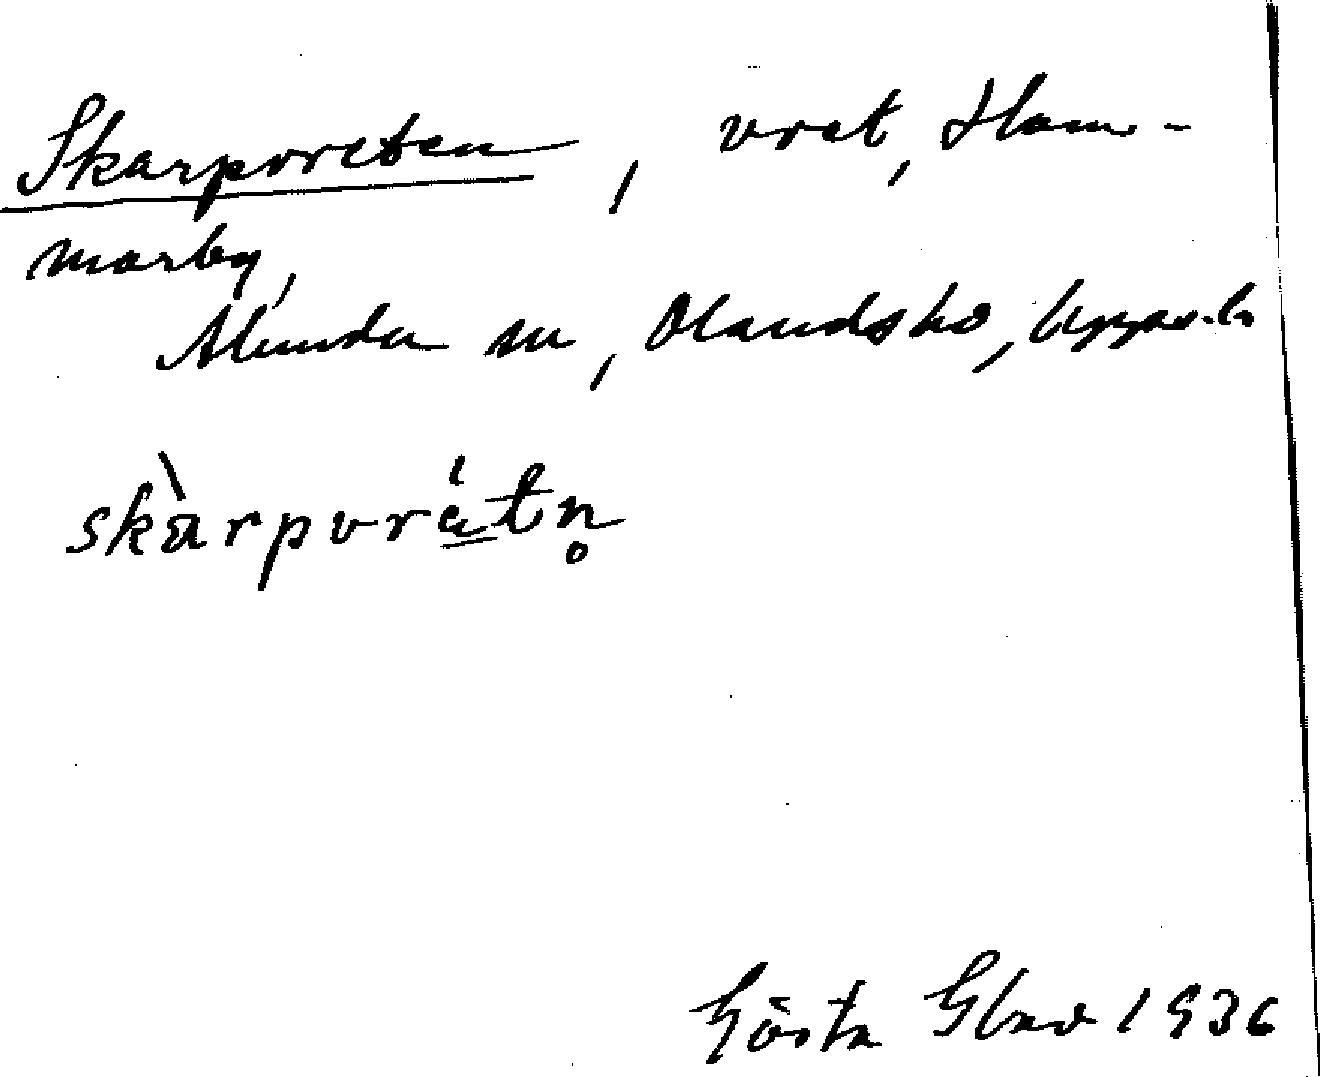 Skarpvreten, vret, Ham-
marby,
Alunda sn, Olandshd, Upps. l.
skàrpvrétn̥
Gösta 1936